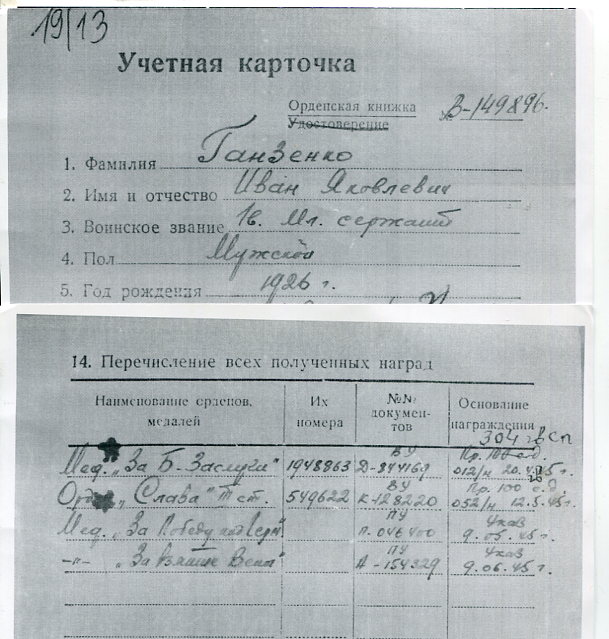 19/13
Учетная карточка
Орденская книжка В-149896.
Удостоверение
1. Фамилия Ганзенко
2. Имя и отчество Иван Яковлевич
3. Воинское звание Гв. Мл. сержант
4. Пол Мужской
5. Год рождения 1926 г.
14. Перечисление всех полученных наград
Наименование орденов, медалей Их номера №№ документов Основание награждения
304 гв сп
Мед. „За Б-Заслуги" 1948863 ВУ Д-844169 Пр. 100 с.д. 012/н 20.4.45г.
Орд. „Слава" III ст. 549622 К-128220 Пр. 100 с.д. 052/н 12.5.45г.
Мед. „За Победу над Герм" ПУ П. 046400 Указ 9.05.45г.
-"- „За взятие Вены" ПУ А-154329 Указ 9.06.45г.